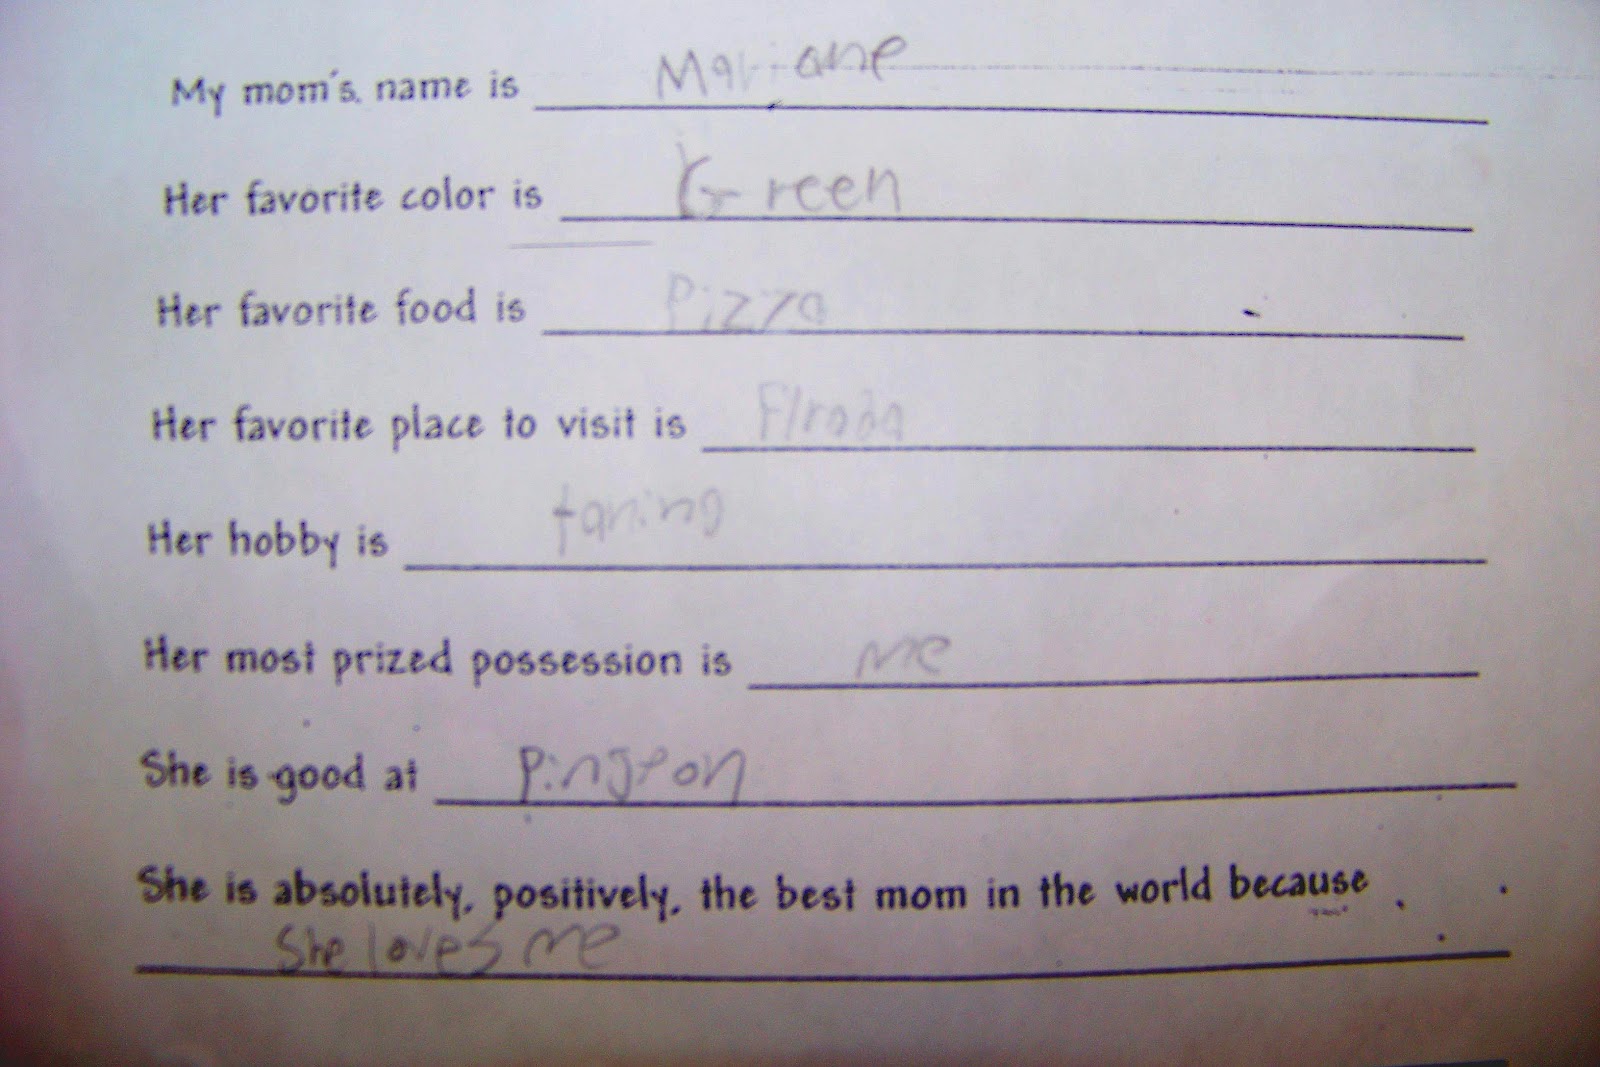 My mom's. name is Mariane
Her favorite color is Green
Her favorite food is Pizza
Her favorite place to visit is Flroda
Her hobby is taning
Her most prized possession is me
She is good at Pinjeon
She is absolutely, positively, the best mom in the world because
She loves me